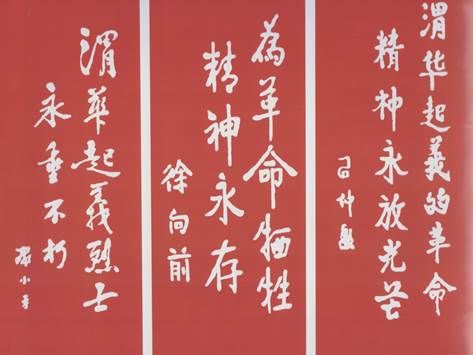 渭华起義的革命
精神永放光芒
习仲勋
為革命牺牲
精神永存
徐向前
渭華起義烈士
永垂不朽
邓小平